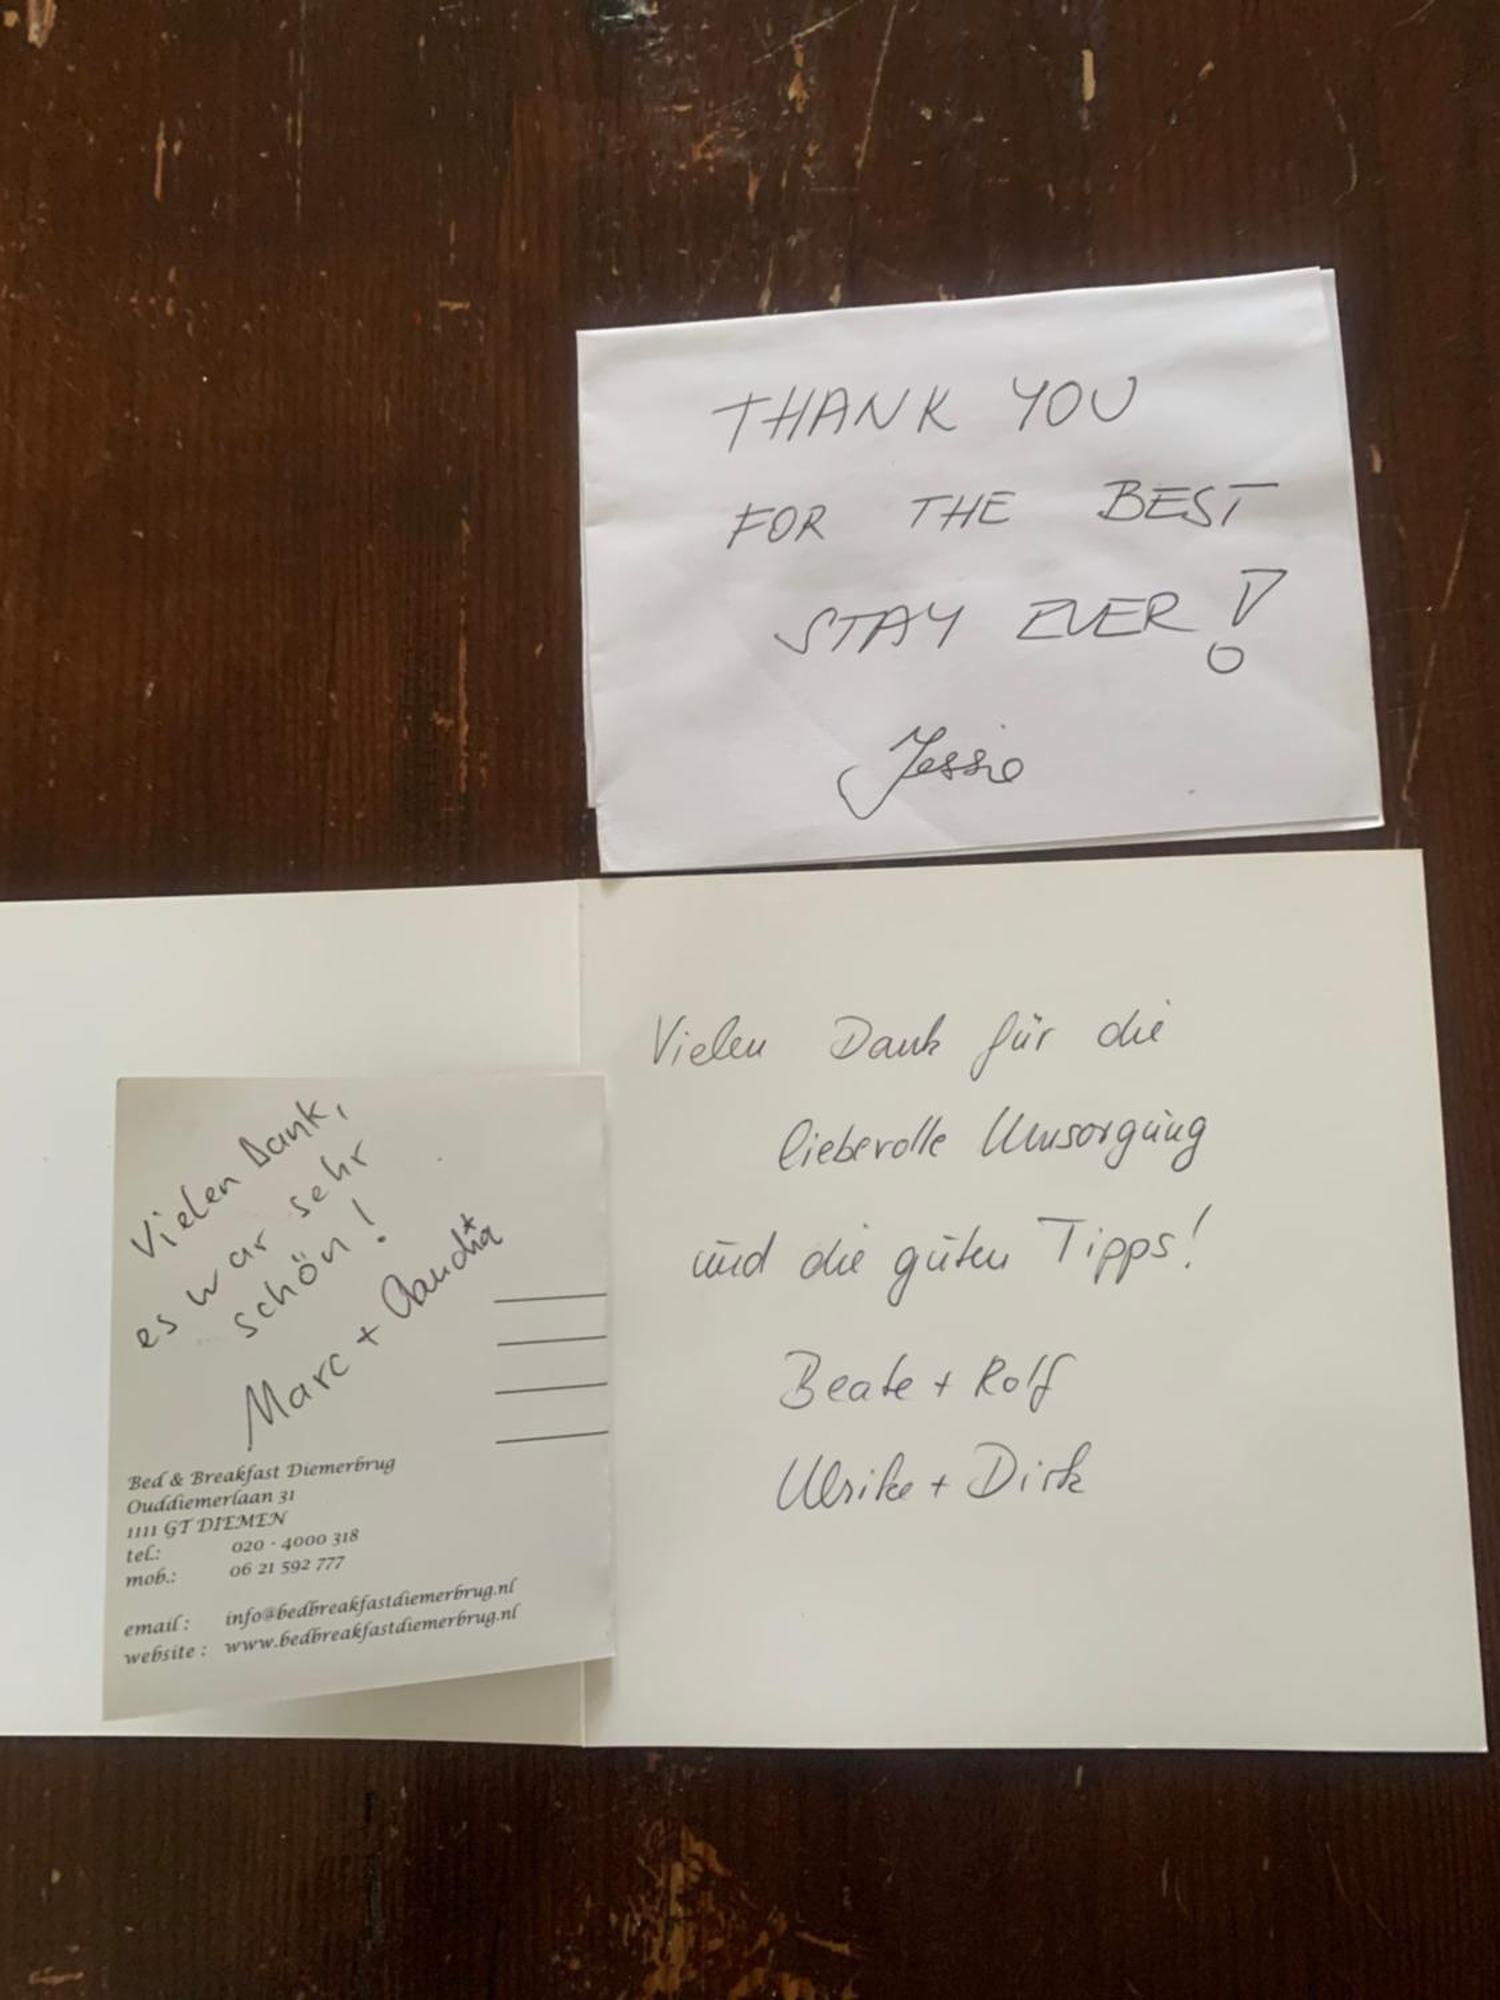 THANK YOU
FOR THE BEST
STAY EVER!
Jessie
Vielen Dank,
es war sehr
schön!
Marc + Claudia
Bed & Breakfast Diemerbrug
Ouddiemerlaan 31
1111 GT DIEMEN
tel.: 020 - 4000 318
mob.: 06 21 592 777
email: info@bedbreakfastdiemerbrug.nl
website: www.bedbreakfastdiemerbrug.nl
Vielen Dank für die
liebevolle Umsorgung
und die guten Tipps!
Beate + Rolf
Ulrike + Dirk